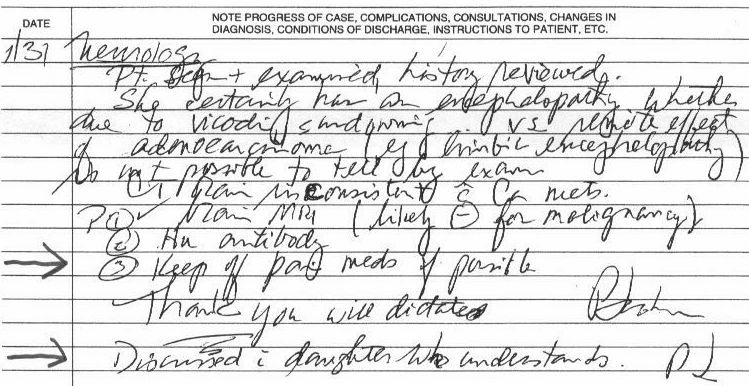 DATE
NOTE PROGRESS OF CASE, COMPLICATIONS, CONSULTATIONS, CHANGES IN
DIAGNOSIS, CONDITIONS OF DISCHARGE, INSTRUCTIONS TO PATIENT, ETC.
1/31 Neurology
Pt. seen + examined, history reviewed.
She certainly has an encephalopathy whether
due to vicodin, sundowning vs remote effect
of adenocarcinoma (eg limbic encephalopathy)
is not possible to tell by exam
inconsistent c̄ Ca mets.
P ① ✓ brain MRI (likely ⊖ for malignancy)
② Hu antibody
→ ③ Keep off pain meds if possible
Thank you will dictate
→ Discussed c̄ daughter who understands.